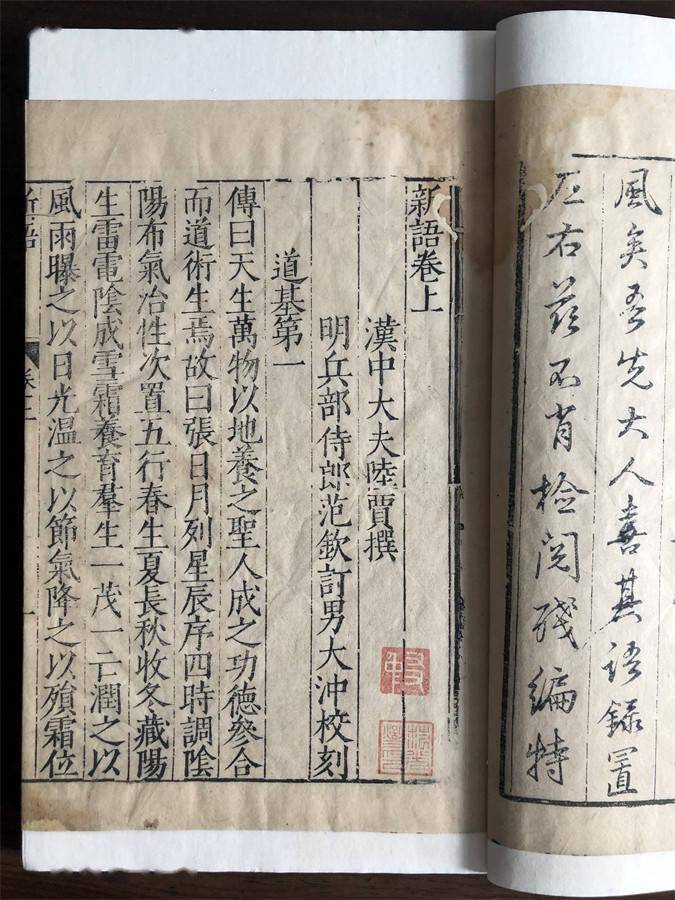 風矣吾先大人喜其語錄置
左右茲不肖檢閱殘編特
新語卷上
漢中大夫陸賈撰
明兵部侍郎范欽訂男大沖校刻
道基第一
傳曰天生萬物以地養之聖人成之功德參合
而道術生焉故曰張日月列星辰序四時調陰
陽布氣治性次置五行春生夏長秋收冬藏陽
生雷電陰成雪霜養育羣生一茂一亡潤之以
風雨曝之以日光溫之以節氣降之以殞霜位
新語 卷上 一